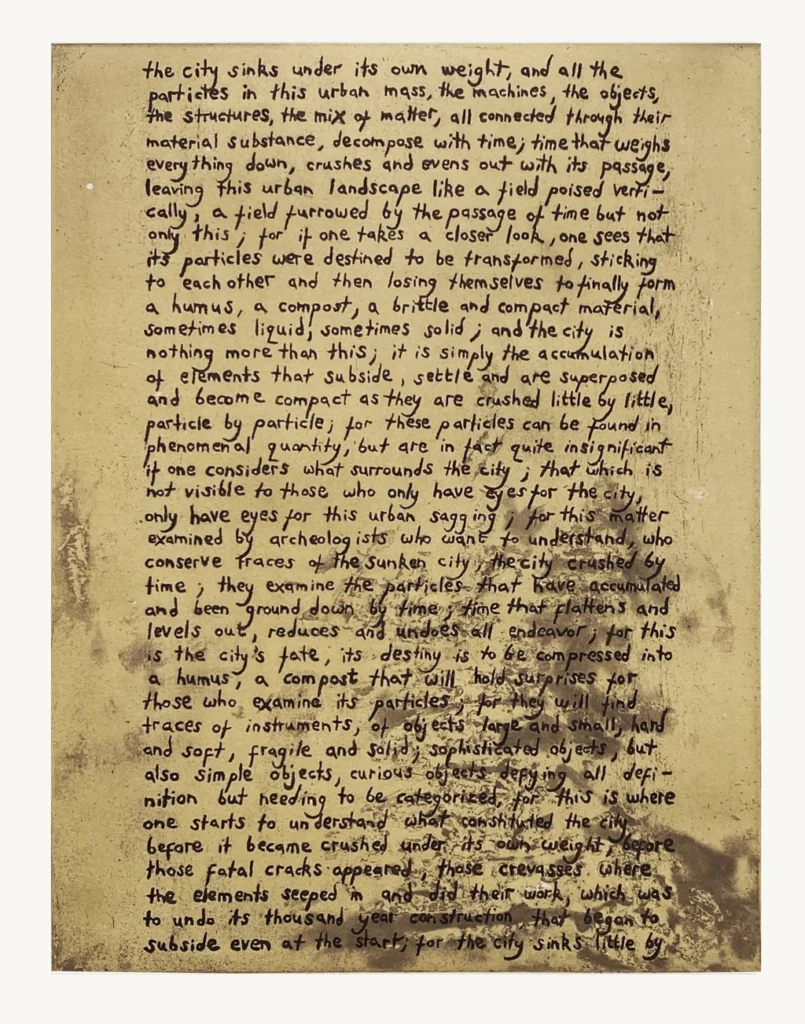 the city sinks under its own weight, and all the
particles in this urban mass, the machines, the objects,
the structures, the mix of matter, all connected through their
material substance, decompose with time; time that weighs
everything down, crushes and evens out with its passage,
leaving this urban landscape like a field poised verti-
cally; a field furrowed by the passage of time but not
only this; for if one takes a closer look, one sees that
its particles were destined to be transformed, sticking
to each other and then losing themselves to finally form
a humus, a compost, a brittle and compact material,
sometimes liquid, sometimes solid; and the city is
nothing more than this; it is simply the accumulation
of elements that subside, settle and are superposed
and become compact as they are crushed little by little,
particle by particle; for these particles can be found in
phenomenal quantity, but are in fact quite insignificant
if one considers what surrounds the city; that which is
not visible to those who only have eyes for the city,
only have eyes for this urban sagging; for this matter
examined by archeologists who want to understand, who
conserve traces of the sunken city, the city crushed by
time; they examine the particles that have accumulated
and been ground down by time; time that flattens and
levels out, reduces and undoes all endeavor; for this
is the city's fate, its destiny is to be compressed into
a humus, a compost that will hold surprises for
those who examine its particles; for they will find
traces of instruments, of objects large and small, hard
and soft, fragile and solid; sophisticated objects, but
also simple objects, curious objects defying all defi-
nition but needing to be categorized, for this is where
one starts to understand what constituted the city
before it became crushed under its own weight, before
those fatal cracks appeared, those crevasses where
the elements seeped in and did their work, which was
to undo its thousand year construction, that began to
subside even at the start; for the city sinks little by